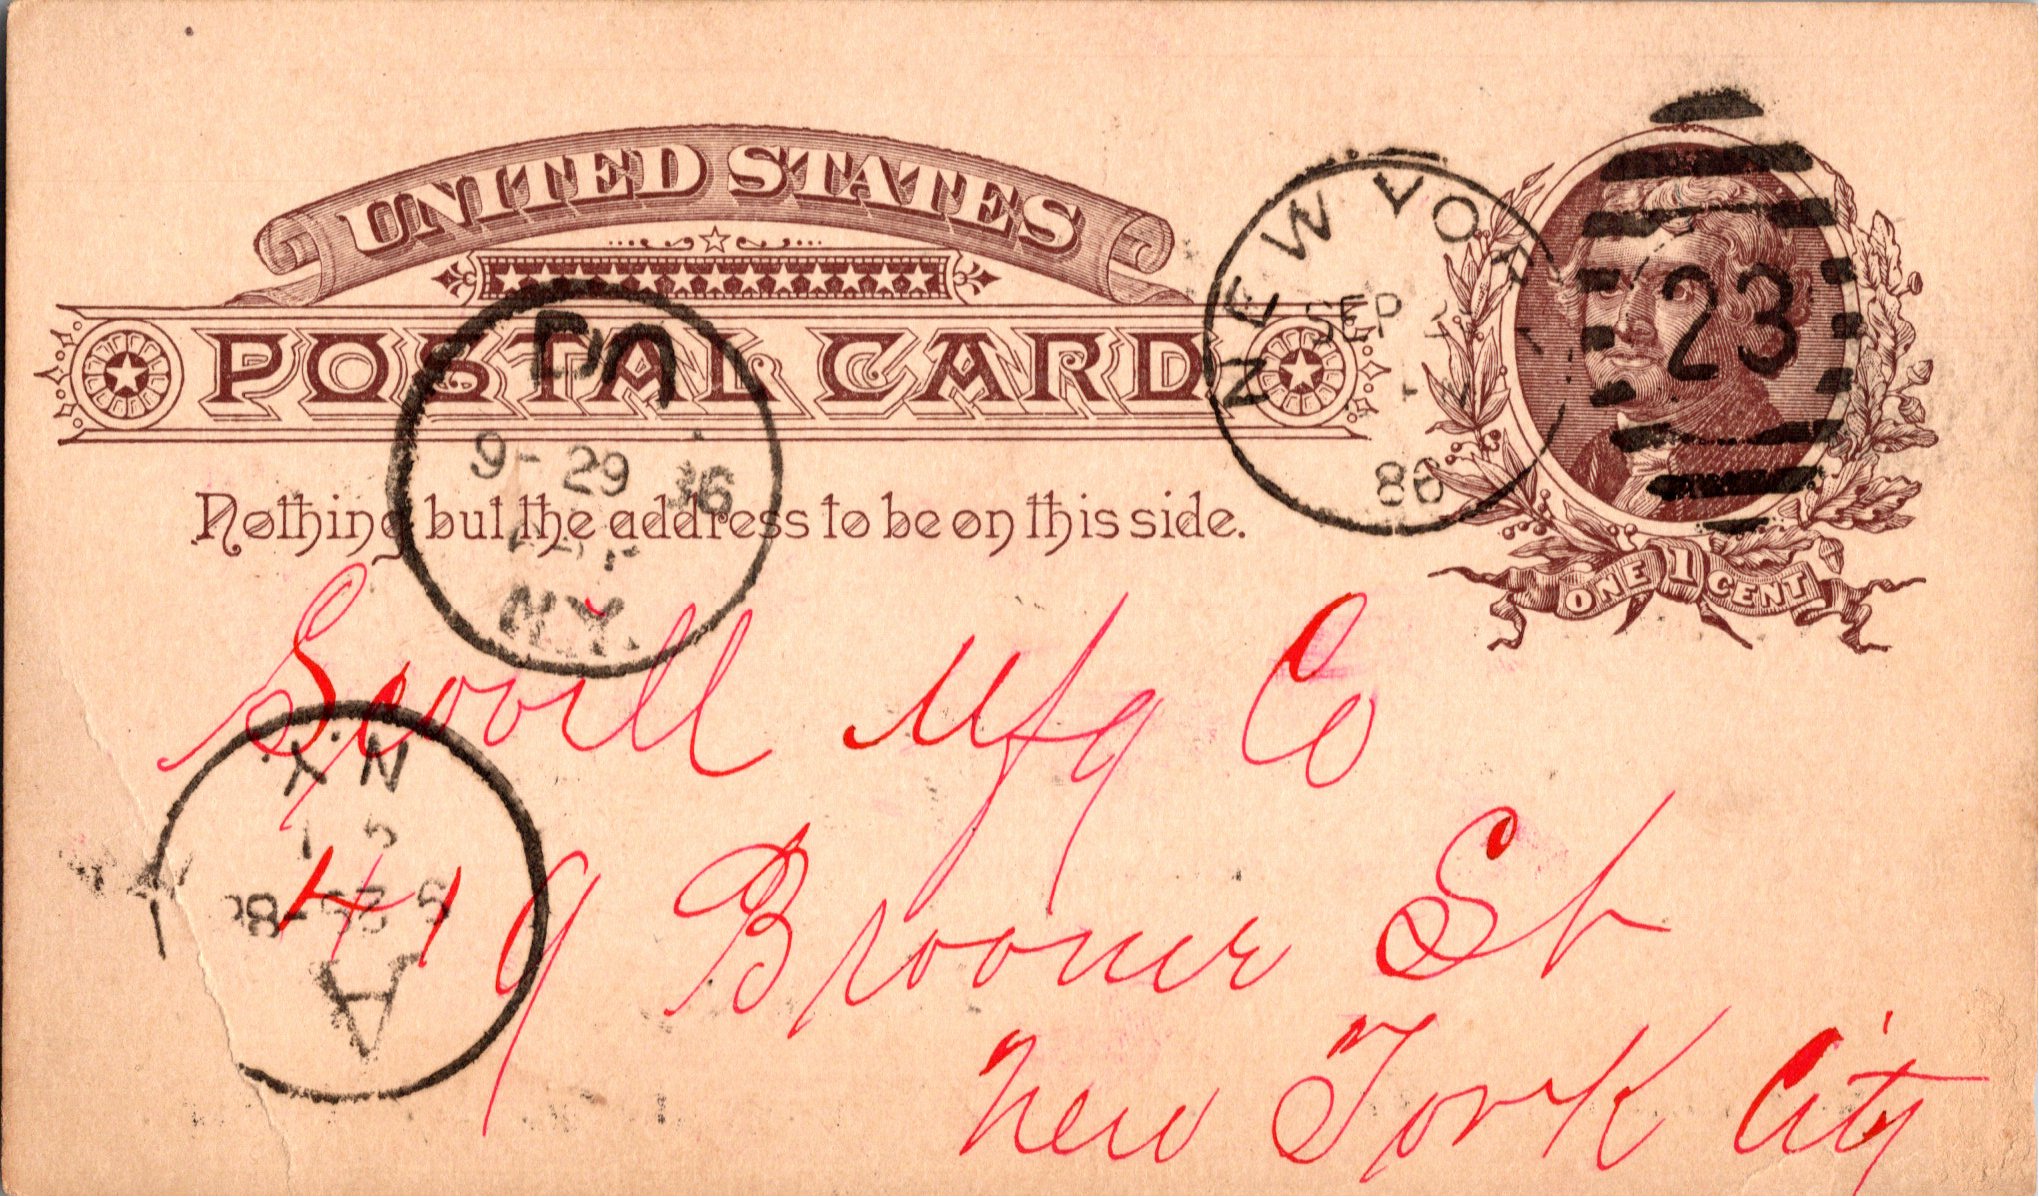 UNITED STATES
POSTAL CARD
Nothing but the address to be on this side.
ONE 1 CENT
NEW YORK
SEP
86
23
9-29 86
N.Y.
Scovill Mfg Co
419 Broome St
New York City
N.Y.
A